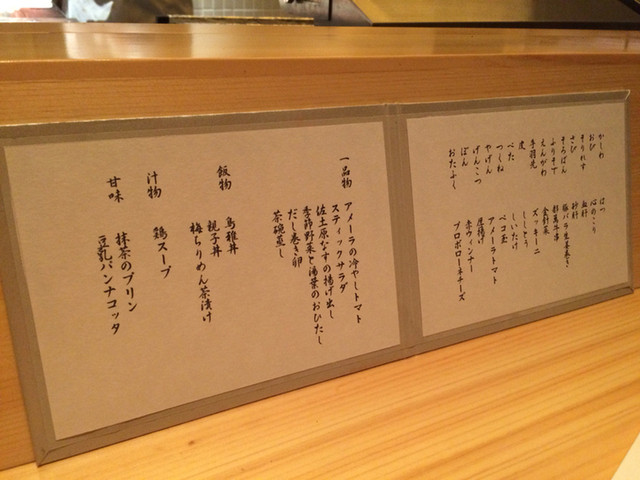 かしわ
おび
そりれす
さび
そろばん
ふりそで
えんがわ
手羽先
皮
べた
つくね
やげん
げんこつ
ぼん
おたふく
はつ
心のこり
血肝
砂肝
豚バラ生姜巻き
金針菜
ズッキーニ
ししとう
しいたけ
ペコ玉
アメーラトマト
厚揚げ
赤ウィンナー
プロボローネチーズ
一品物
アメーラの冷やしトマト
スティックサラダ
佐土原なすの揚げ出し
季節野菜と湯葉のおひたし
だし巻き卵
茶碗蒸し
飯物
鳥雅丼
親子丼
梅ちりめん茶漬け
汁物
鶏スープ
甘味
抹茶のプリン
豆乳パンナコッタ